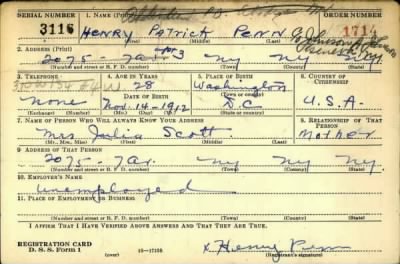 SERIAL NUMBER 1. NAME (Print) ORDER NUMBER
3116 HENRY Patrick Penn 1714
(First) (Middle) (Last)
2. ADDRESS (Print)
2075-7av. #3 ny ny ny
(Number and street or R. F. D. number) (Town) (County) (State)
3. TELEPHONE 4. AGE IN YEARS 5. PLACE OF BIRTH 6. COUNTRY OF CITIZENSHIP
28 Washington
DATE OF BIRTH (Town or county)
none Nov.-14-1912 D.C U.S.A.
(Exchange) (Number) (Mo.) (Day) (Yr.) (State or country)
7. NAME OF PERSON WHO WILL ALWAYS KNOW YOUR ADDRESS 8. RELATIONSHIP OF THAT PERSON
Mrs Julia Scott Mother
(Mr., Mrs., Miss) (First) (Middle) (Last)
9. ADDRESS OF THAT PERSON
2075-7av. ny ny ny
(Number and street or R. F. D. number) (Town) (County) (State)
10. EMPLOYER'S NAME
unemployed
11. PLACE OF EMPLOYMENT OR BUSINESS
(Number and street or R. F. D. number) (Town) (County) (State)
I AFFIRM THAT I HAVE VERIFIED ABOVE ANSWERS AND THAT THEY ARE TRUE.
REGISTRATION CARD
D. S. S. Form 1 (over) 16-17105 x Henry Penn
(Registrant's signature)